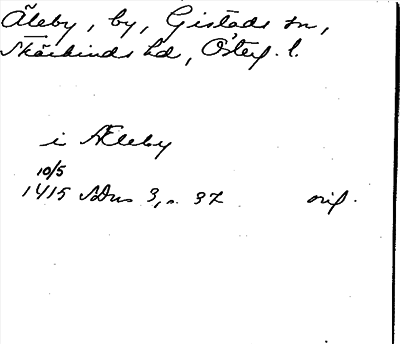 Äleby, by, Gistads sn,
Skärkinds hd, Österg. l.
i Æleby
10/5
1415 SDns 3, s. 37 orig.